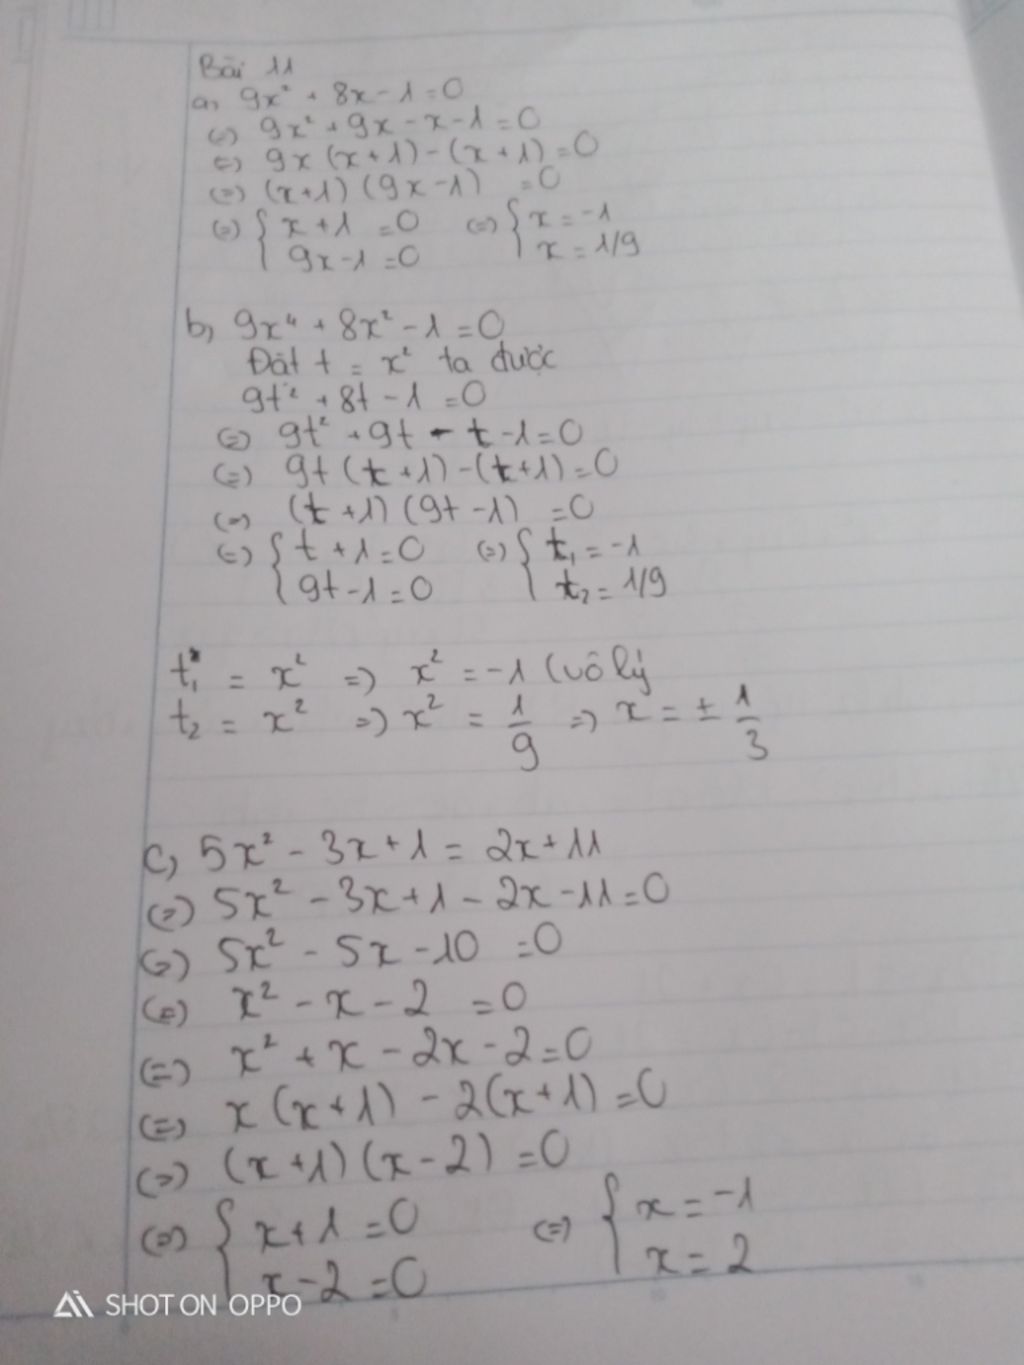 Bài 11
a, 9x² + 8x - 1 = 0
(=) 9x² + 9x - x - 1 = 0
(=) 9x (x + 1) - (x + 1) = 0
(=) (x + 1) (9x - 1) = 0
(=) { x + 1 = 0 (=) { x = -1
9x - 1 = 0 x = 1/9
b, 9x⁴ + 8x² - 1 = 0
Đặt t = x² ta được
9t² + 8t - 1 = 0
(=) 9t² + 9t - t - 1 = 0
(=) 9t (t + 1) - (t + 1) = 0
(=) (t + 1) (9t - 1) = 0
(=) { t + 1 = 0 (=) { t₁ = -1
9t - 1 = 0 t₂ = 1/9
t₁ = x² =) x² = -1 (vô lý
t₂ = x² =) x² = 1/9 =) x = ± 1/3
c, 5x² - 3x + 1 = 2x + 11
(=) 5x² - 3x + 1 - 2x - 11 = 0
(=) 5x² - 5x - 10 = 0
(=) x² - x - 2 = 0
(=) x² + x - 2x - 2 = 0
(=) x (x + 1) - 2 (x + 1) = 0
(=) (x + 1) (x - 2) = 0
(=) { x + 1 = 0 (=) { x = -1
x - 2 = 0 x = 2
SHOT ON OPPO